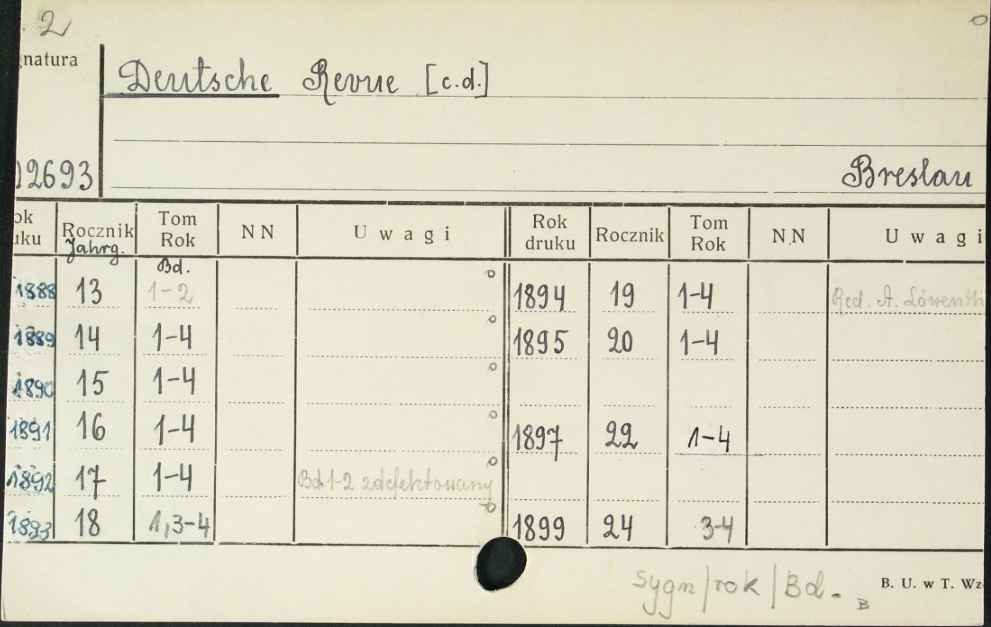 2
natura
Deutsche Revue [c.d.]
2693
Breslau
ok
uku
Rocznik
Jahrg.
Tom
Rok
Bd.
NN
Uwagi
Rok
druku
Rocznik
Tom
Rok
NN
Uwagi
1888 13 1-2 1894 19 1-4 Red. A. Löwenth
1889 14 1-4 1895 20 1-4
1890 15 1-4
1891 16 1-4 1897 22 1-4
1892 17 1-4 Bd 1-2 zdefektowany
1893 18 1,3-4 1899 24 3-4
sygn/rok/Bd.
B
B. U. w T. Wz